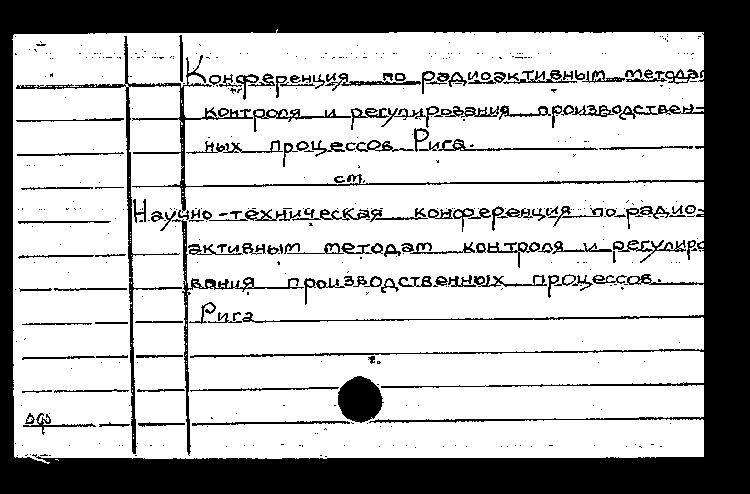 Конференция по радиоактивным методам
контроля и регулирования производствен-
ных процессов. Рига.
см.
Научно-техническая конференция по радио-
активным методам контроля и регулиро
вания производственных процессов.
Рига
оф